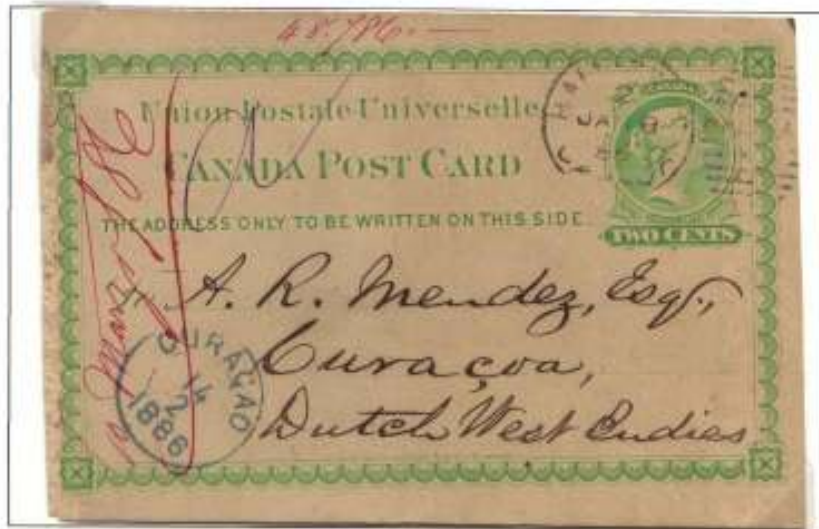 48.786.—
Union Postale Universelle
CANADA POST CARD
THE ADDRESS ONLY TO BE WRITTEN ON THIS SIDE
TWO CENTS
A. R. Mendez, Esqr.,
Curaçoa,
Dutch West Indies
CURAÇAO
14
2
1886